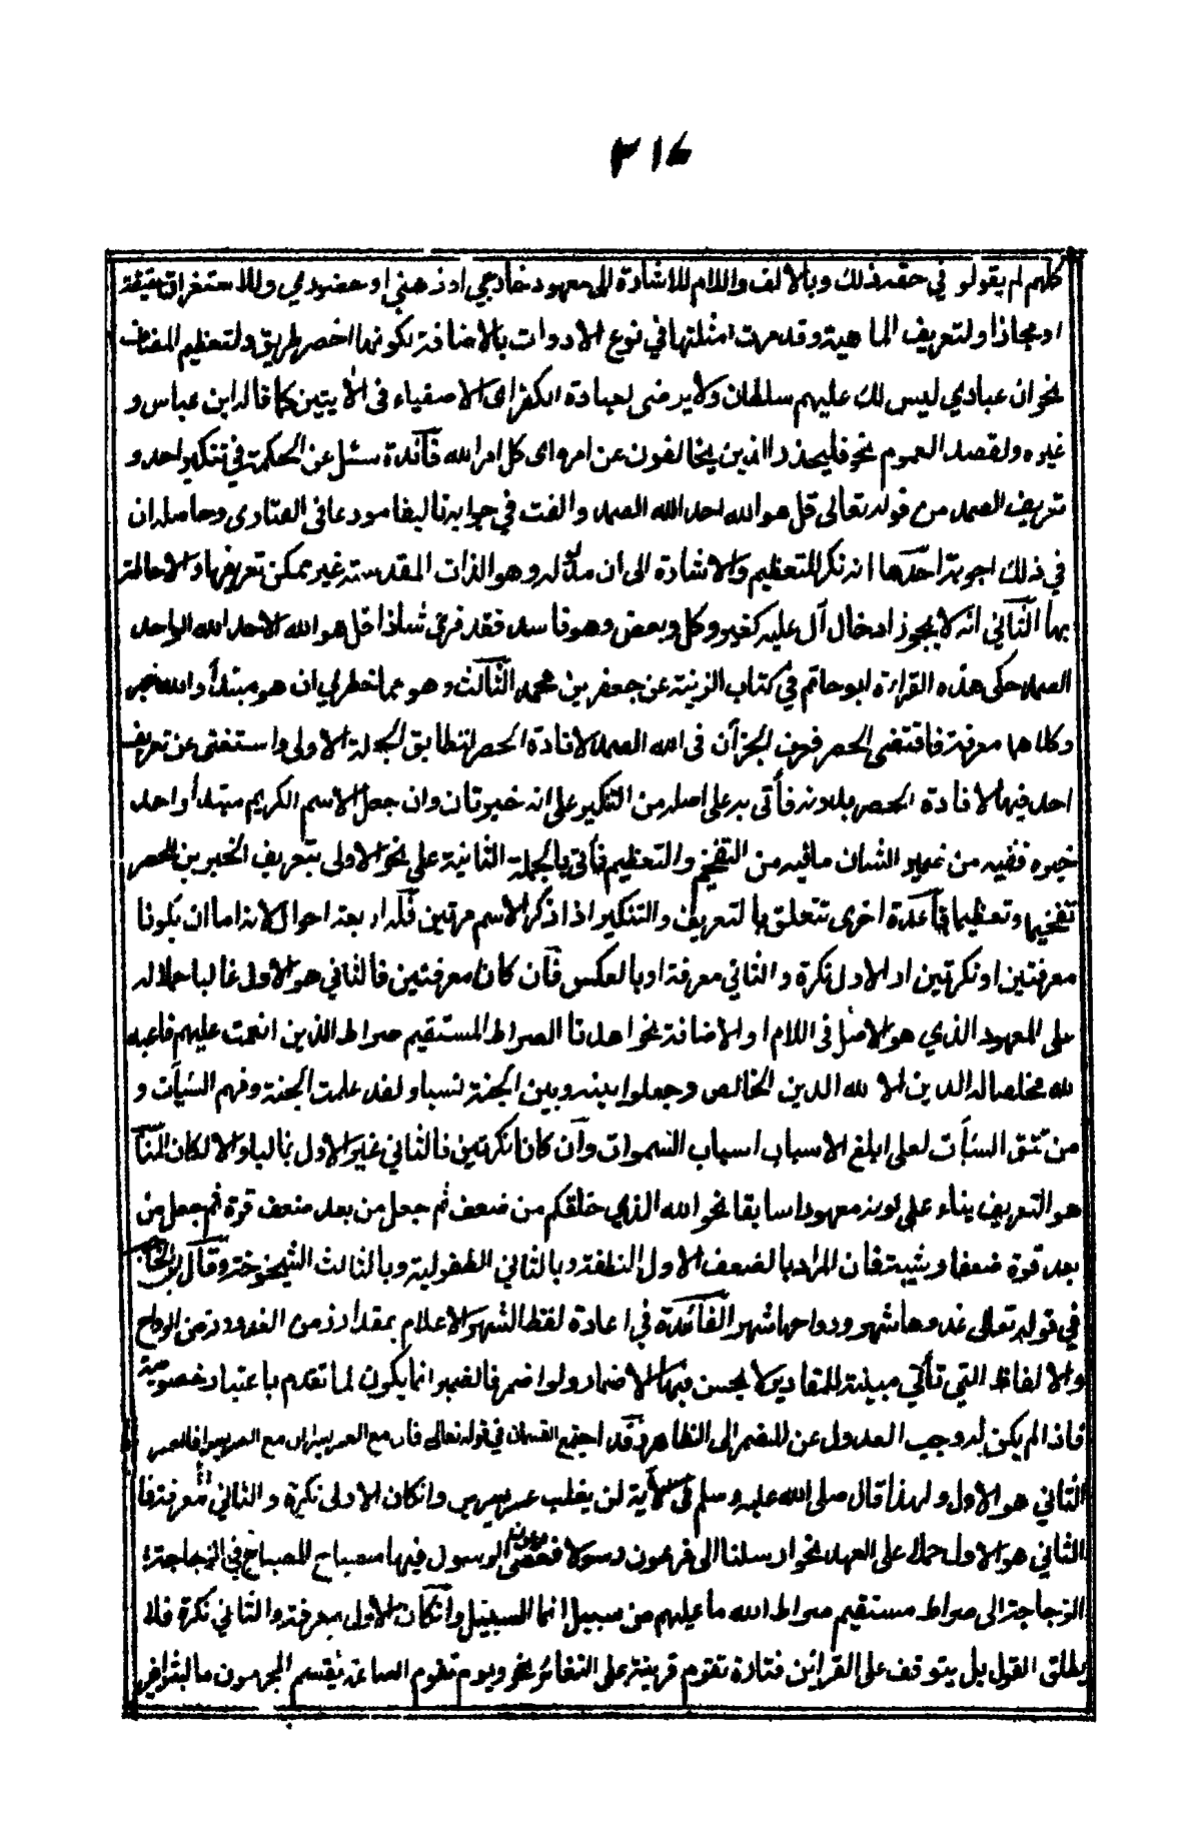 ٣١٦
كلهم لم يقولو في حقه ذلك وبالالف واللام للاشارة الى معهود خارجي او ذهني او حضوري وللاستغراق حقيقة
او مجازا ولتعريف الماهية وقد مرت امثلتها في نوع الادوات بالاضافة لكونها اخصر طريق ولتعظيم المضاف
نحو ان عبادي ليس لك عليهم سلطان ولا يرضى لعبادة الكفر اى الاصفياء فى الأيتين كما قاله ابن عباس و
غيره ولقصد العموم نحو فليحذر الذين يخالفون عن امره اى كل امر الله فآئدة سئل عن الحكمة في تنكير احد و
تعريف الصمد من قوله تعالى قل هو الله احد الله الصمد والفت في جوابه تاليفا مودعا فى الفتاوى وحاصله ان
في ذلك اجوبة احدها انه نكر للتعظيم والاشارة الى أن مدلوله وهو الذات المقدسة غير ممكن تعريفها والاحاطة
بها الثاني انه لا يجوز ادخال آل عليه كغير وكل وبعض وهو فاسد فقد قرئ شاذا قل هو الله الاحد الله الواحد
الصمد حكى هذه القراءة ابو حاتم في كتاب الزينة عن جعفر بن محمد الثالث وهو مما خطر لي ان هو مبتدأ والله خبر
وكلاهما معرفة فاقتضى الحصر فعرف الجزآن فى الله الصمد لافادة الحصر لتطابق الجملة الاولى واستغنى عن تعريف
احد فيها لافادة الحصر بدونه فأتى به على اصله من التنكير على انه خبر ثان وان جعل الاسم الكريم مبتدأ واحد
خبره ففيه من ضمير الشان مافيه من التفخيم والتعظيم فأتى بالجملة الثانية على نحو الاولى بتعريف الخبرين للحصر
تفخيما وتعظيما قاعدة اخرى تتعلق بالتعريف والتنكير اذا ذكر الاسم مرتين فله اربعة احوال لانه اما ان يكونا
معرفتين او نكرتين او الاول نكرة والثاني معرفة او بالعكس فآن كانا معرفتين فالثاني هو الاول غالبا حملا له
على المعهود الذي هو الاصل فى اللام او الاضافة نحو اهدنا الصراط المستقيم صراط الذين انعمت عليهم فاعبد
لله مخلصا له الدين الا لله الدين الخالص وجعلوا بينه وبين الجنة نسبا ولقد علمت الجنة وقهم السيآت و
من تتق السيآت لعلى ابلغ الاسباب اسباب السموات وآن كانا نكرتين فالثاني غير الاول غالبا والا لكان المناسب
هو التعريف بناء على كونه معهودا سابقا نحو الله الذي خلقكم من ضعف ثم جعل من بعد ضعف قوة ثم جعل من
بعد قوة ضعفا وشيبة فان المراد بالضعف الاول النطفة وبالثاني الطفولية وبالثالث الشيخوخة وقال ابن الحاجب
في قوله تعالى غدوها شهر ورواحها شهر الفآئدة في اعادة لفظ الشهر الاعلام بمقدار زمن الغدو وزمن الرواح
والالفاظ التي تأتي مبينة للمقادير لا يحسن فيها الاضمار ولو اضمر فالضمير انما يكون لما تقدم باعتبار خصوصيته
فاذا لم يكن له وجب العدول عن المضمر الى الظاهر وقد اجتمع القسمان في قوله تعالى فان مع العسر يسرا ان مع العسر يسرا فالعسر
الثاني هو الاول ولهذا قال صلى الله عليه وسلم فى الآية لن يغلب عسر يسرين وان كان الاول نكرة والثاني معرفة فا
الثاني هو الاول حملا على العهد نحو ارسلنا الى فرعون رسولا فعصى فرعون الرسول فيها مصباح المصباح في الزجاجة
الزجاجة الى صراط مستقيم صراط الله ما عليهم من سبيل انما السبيل وان كان الاول معرفة والثاني نكرة فلا
يطلق القول بل يتوقف على القرائن فتارة تقوم قرينة على التغائر نحو ويوم تقوم الساعة يقسم المجرمون ما لبثوا غير